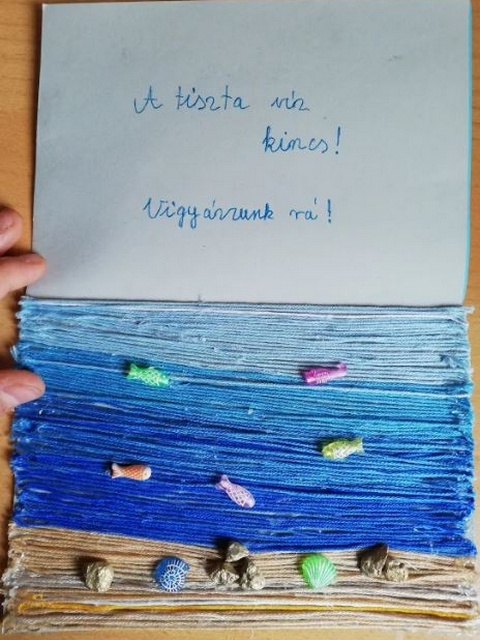 A tiszta víz
kincs!
Vigyázzunk rá!